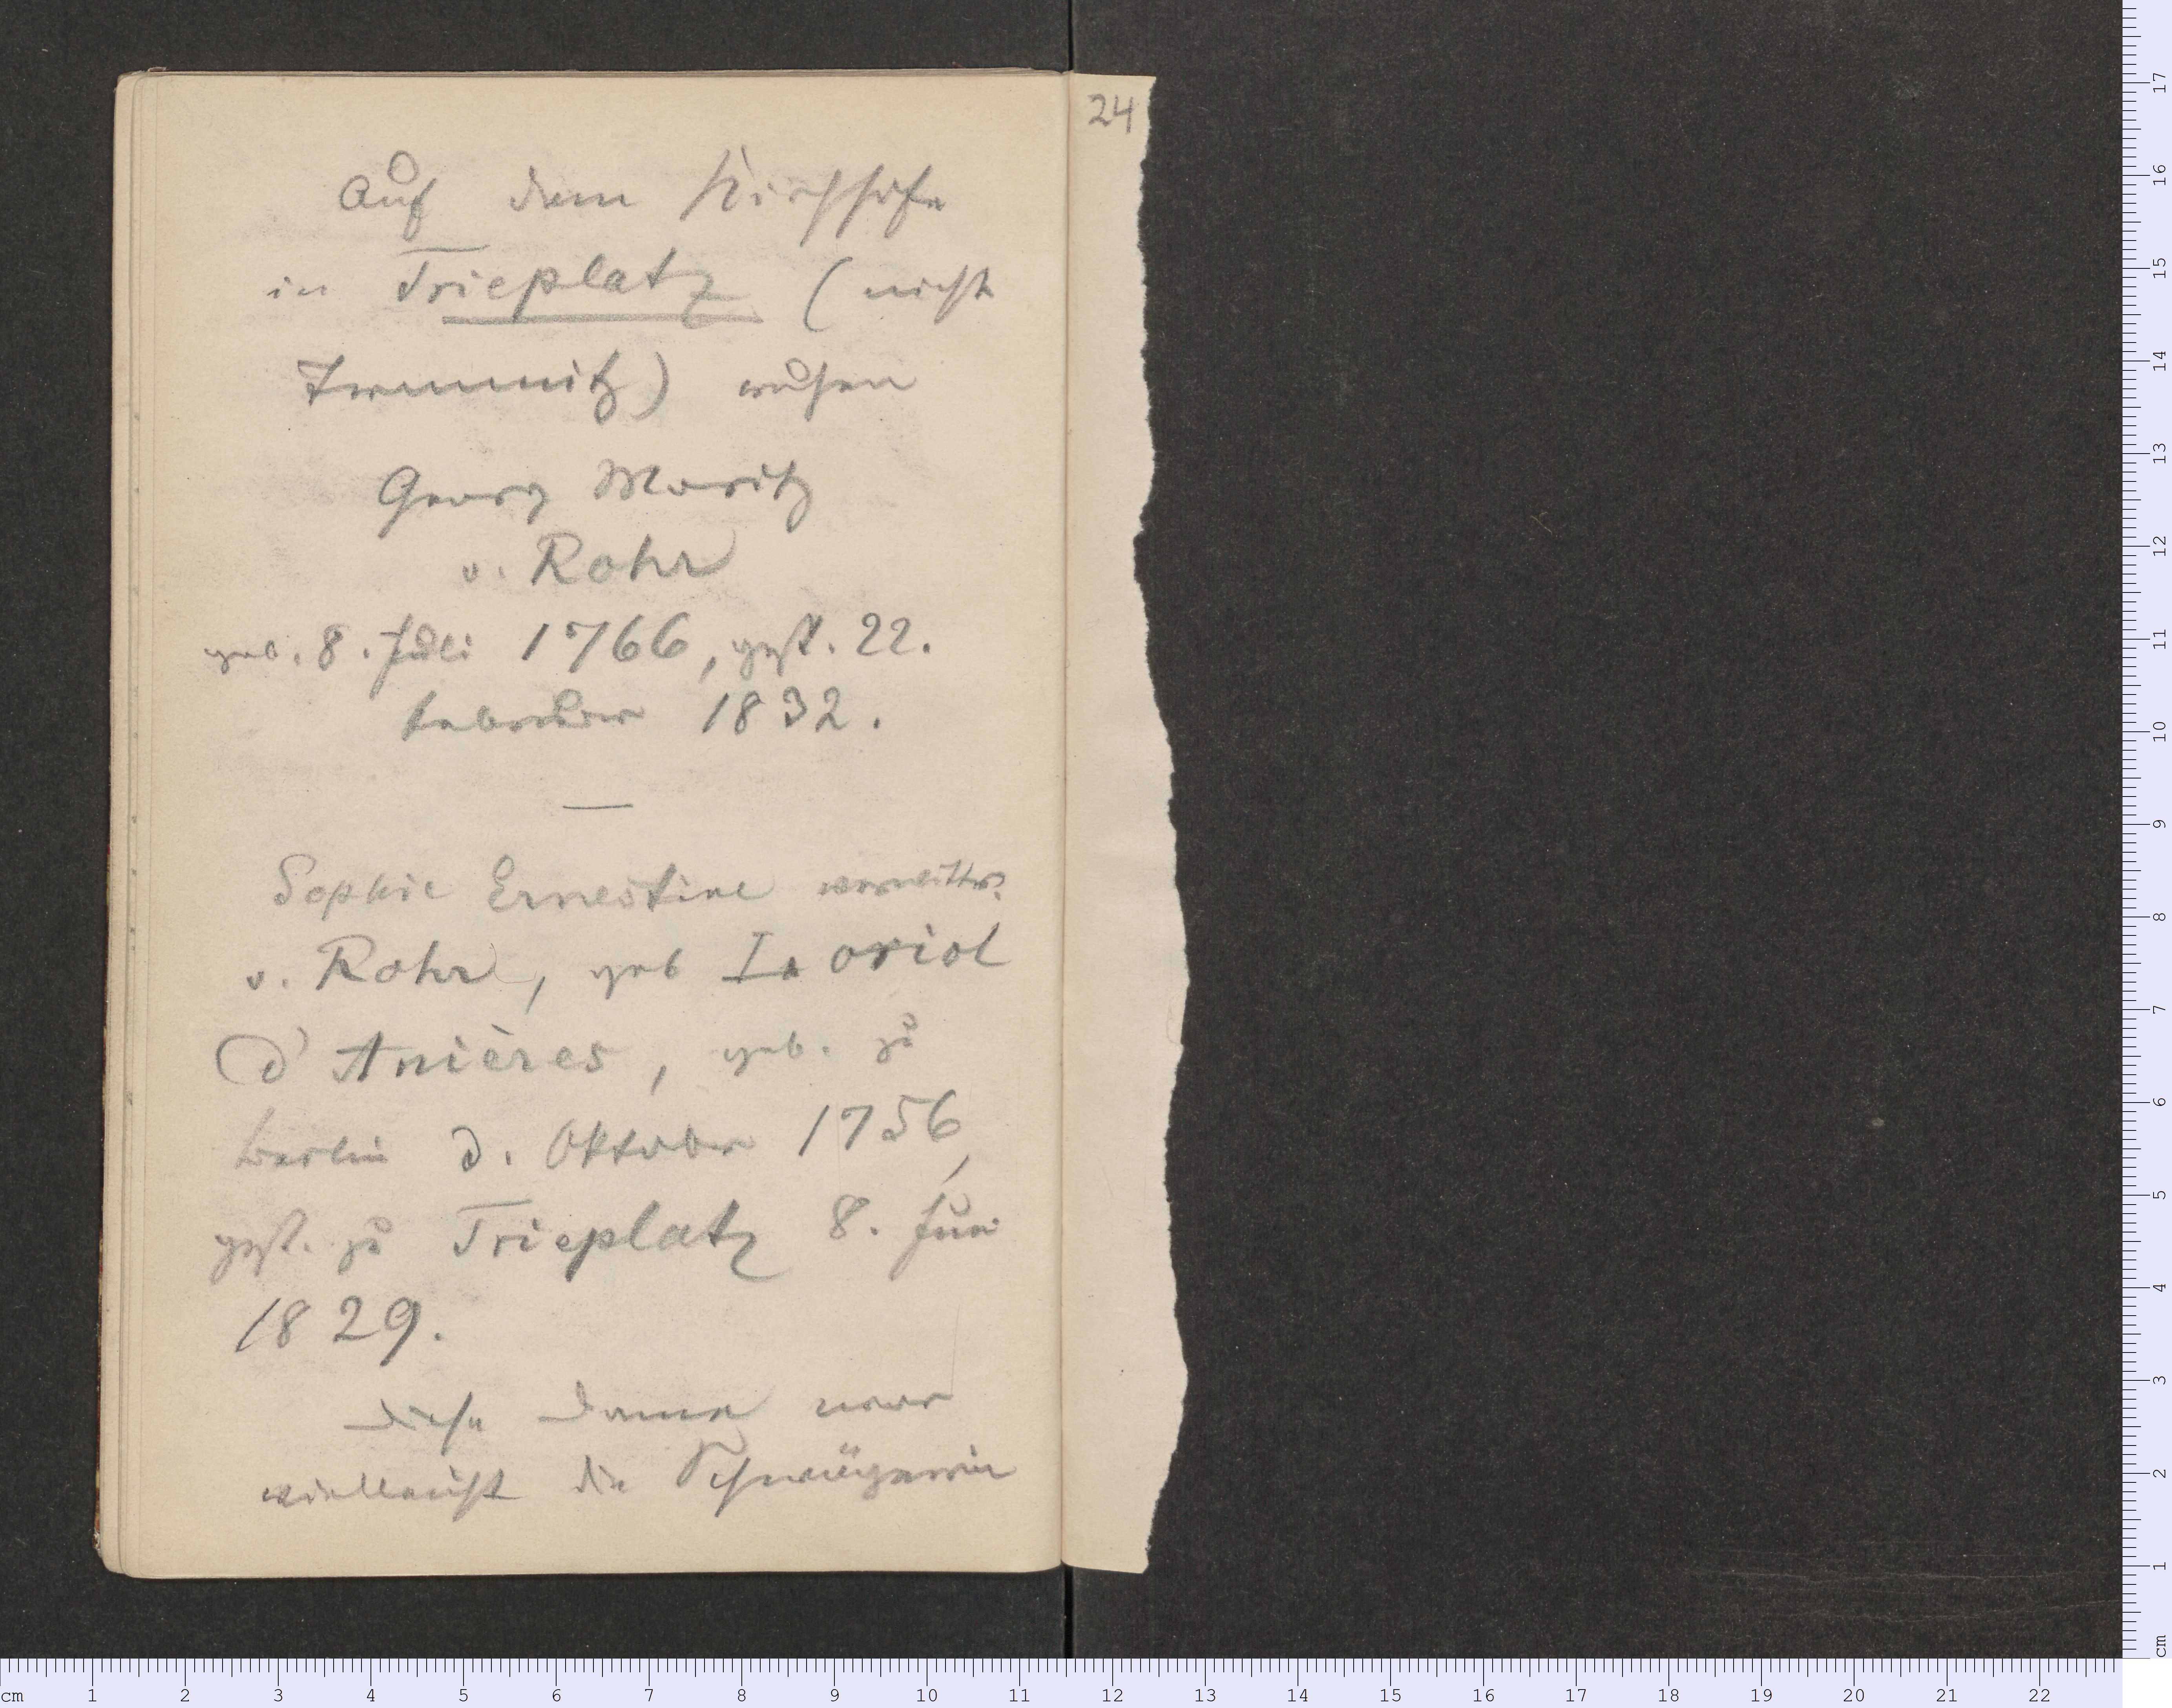 24
Auf dem Kirchhofe
in Trieplatz (nicht
Tramnitz) ruhen
Georg Moritz
v. Rohr
geb. 8. Juli 1766, gest. 22.
Februar 1832.
—
Sophie Ernestine
v. Rohr, geb
d'Anières, geb. zu
Berlin d. Oktober 1756,
gest. zu Trieplatz 8. Juni
1829.
Diese Dame war
vielleicht die Schwägerin